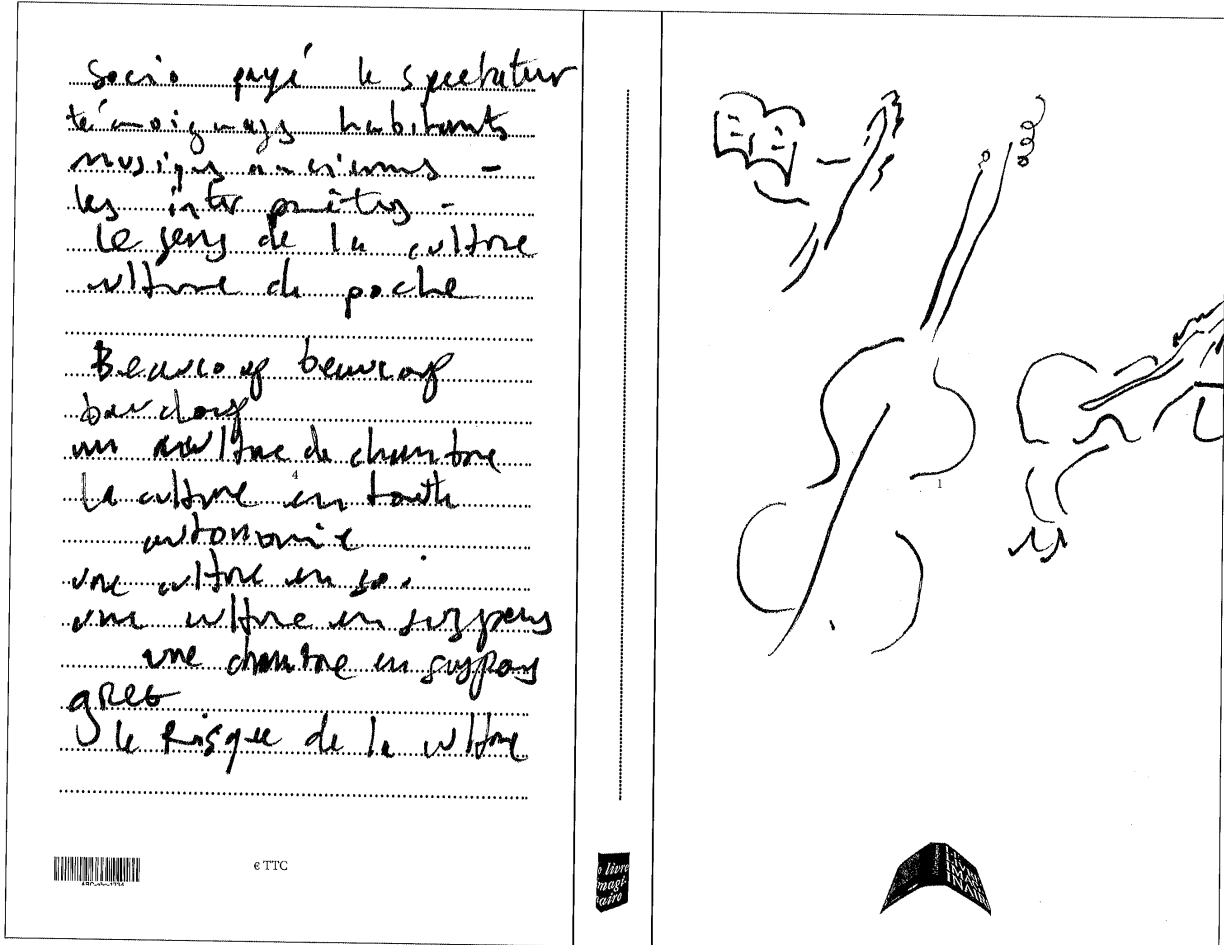 Socio payé le spectateur
témoignages habitants
musiques anciennes -
les interprètes -
Le sens de la culture
culture de poche
Beaucoup beaucoup
un culture de chambre
La culture en toute
4
autonomie
une culture en soi
une culture en suspens
une chambre en suspens
le Risque de la culture
€ TTC
1
o livre
imagi-
nairo